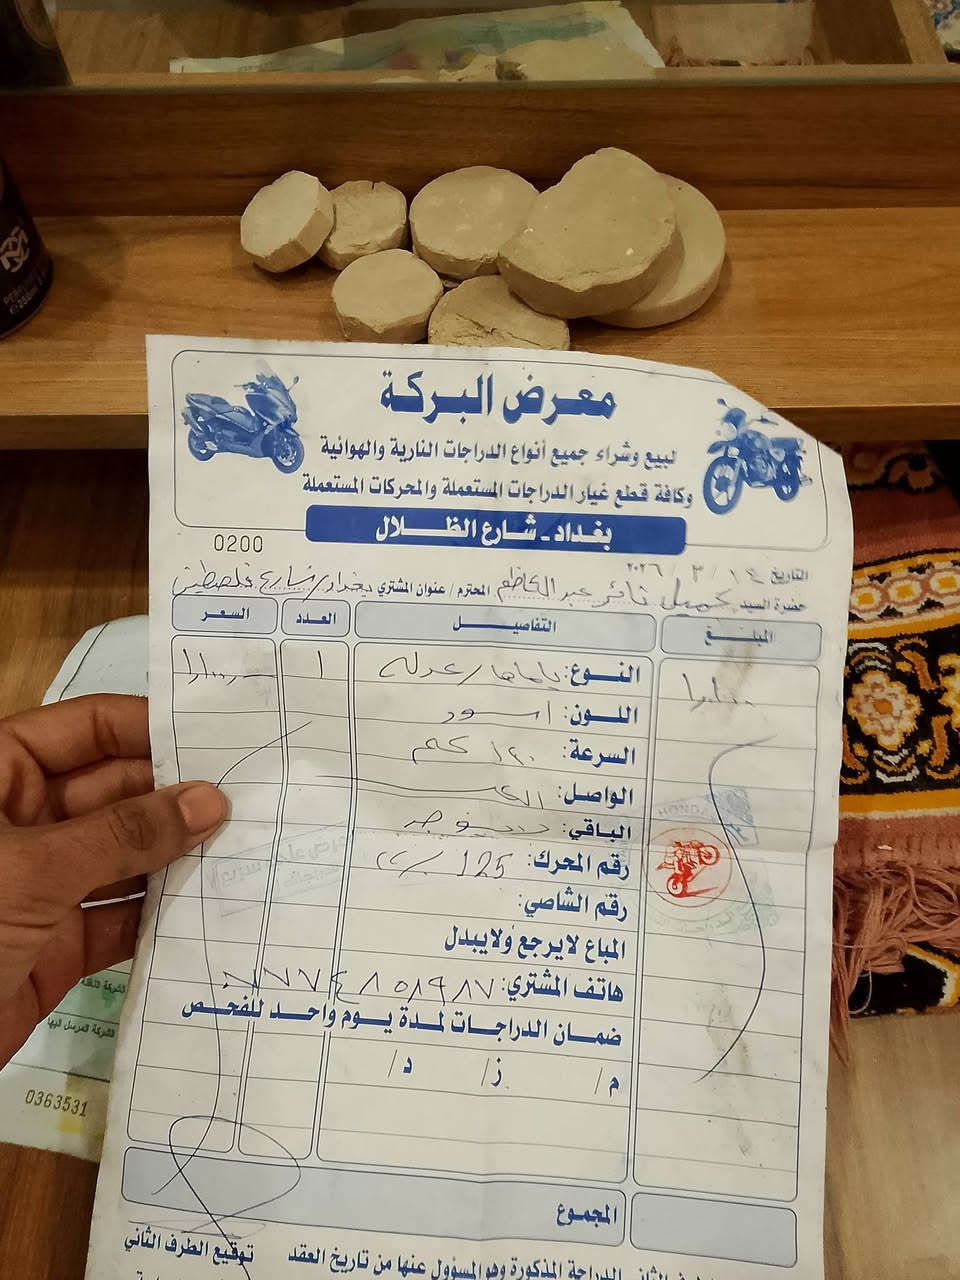 معرض البركة
لبيع وشراء جميع أنواع الدراجات النارية والهوائية
وكافة قطع غيار الدراجات المستعملة والمحركات المستعملة
بغداد ـ شارع الظلال
0200
التاريخ ١٤ / ٣ / ٢٠٢٦
حضرة السيد جميل ثائر عبد الكاظم المحترم / عنوان المشتري بغداد / شارع فلسطين
المبلغ التفاصيل العدد السعر
النوع: ياماها / عدله ١
اللون: اسود
السرعة: ١٢٠ كم
الواصل:
الباقي: لا يوجد
رقم المحرك: 125
رقم الشاصي:
المباع لايرجع ولايبدل
هاتف المشتري: ٠٧٧٤٨٥٨٩٨٧
ضمان الدراجات لمدة يوم واحد للفحص
م / ز / د /
المجموع
الدراجة المذكورة وهو المسؤول عنها من تاريخ العقد
توقيع الطرف الثاني
الشركة الناقلة
الشركة المرسل اليها
0363531